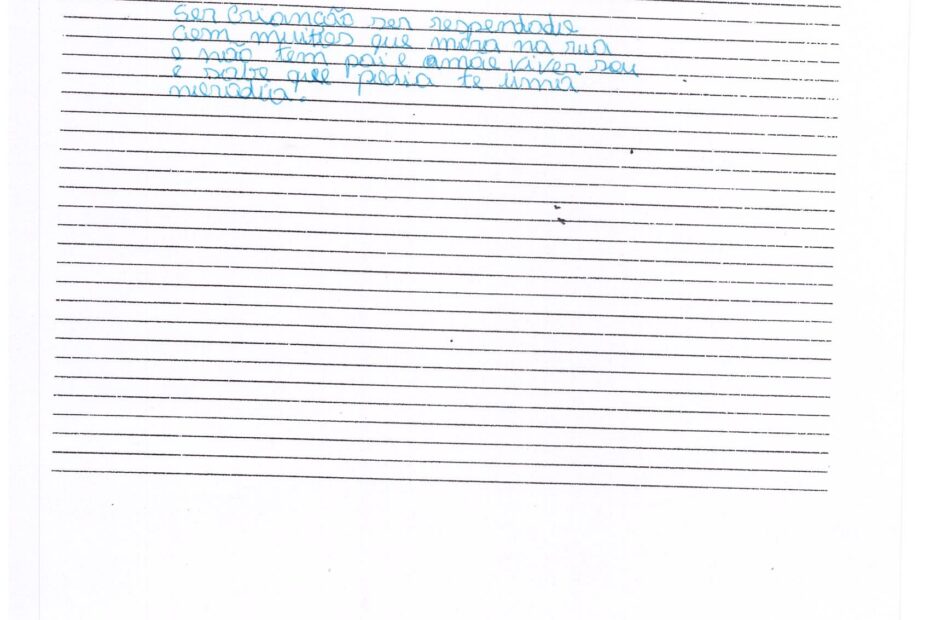 ser crianção ser respentade
cem muitos que mora na rua
e não tem pai e amãe viver sou
e sabe que pedia te uma
meradia.